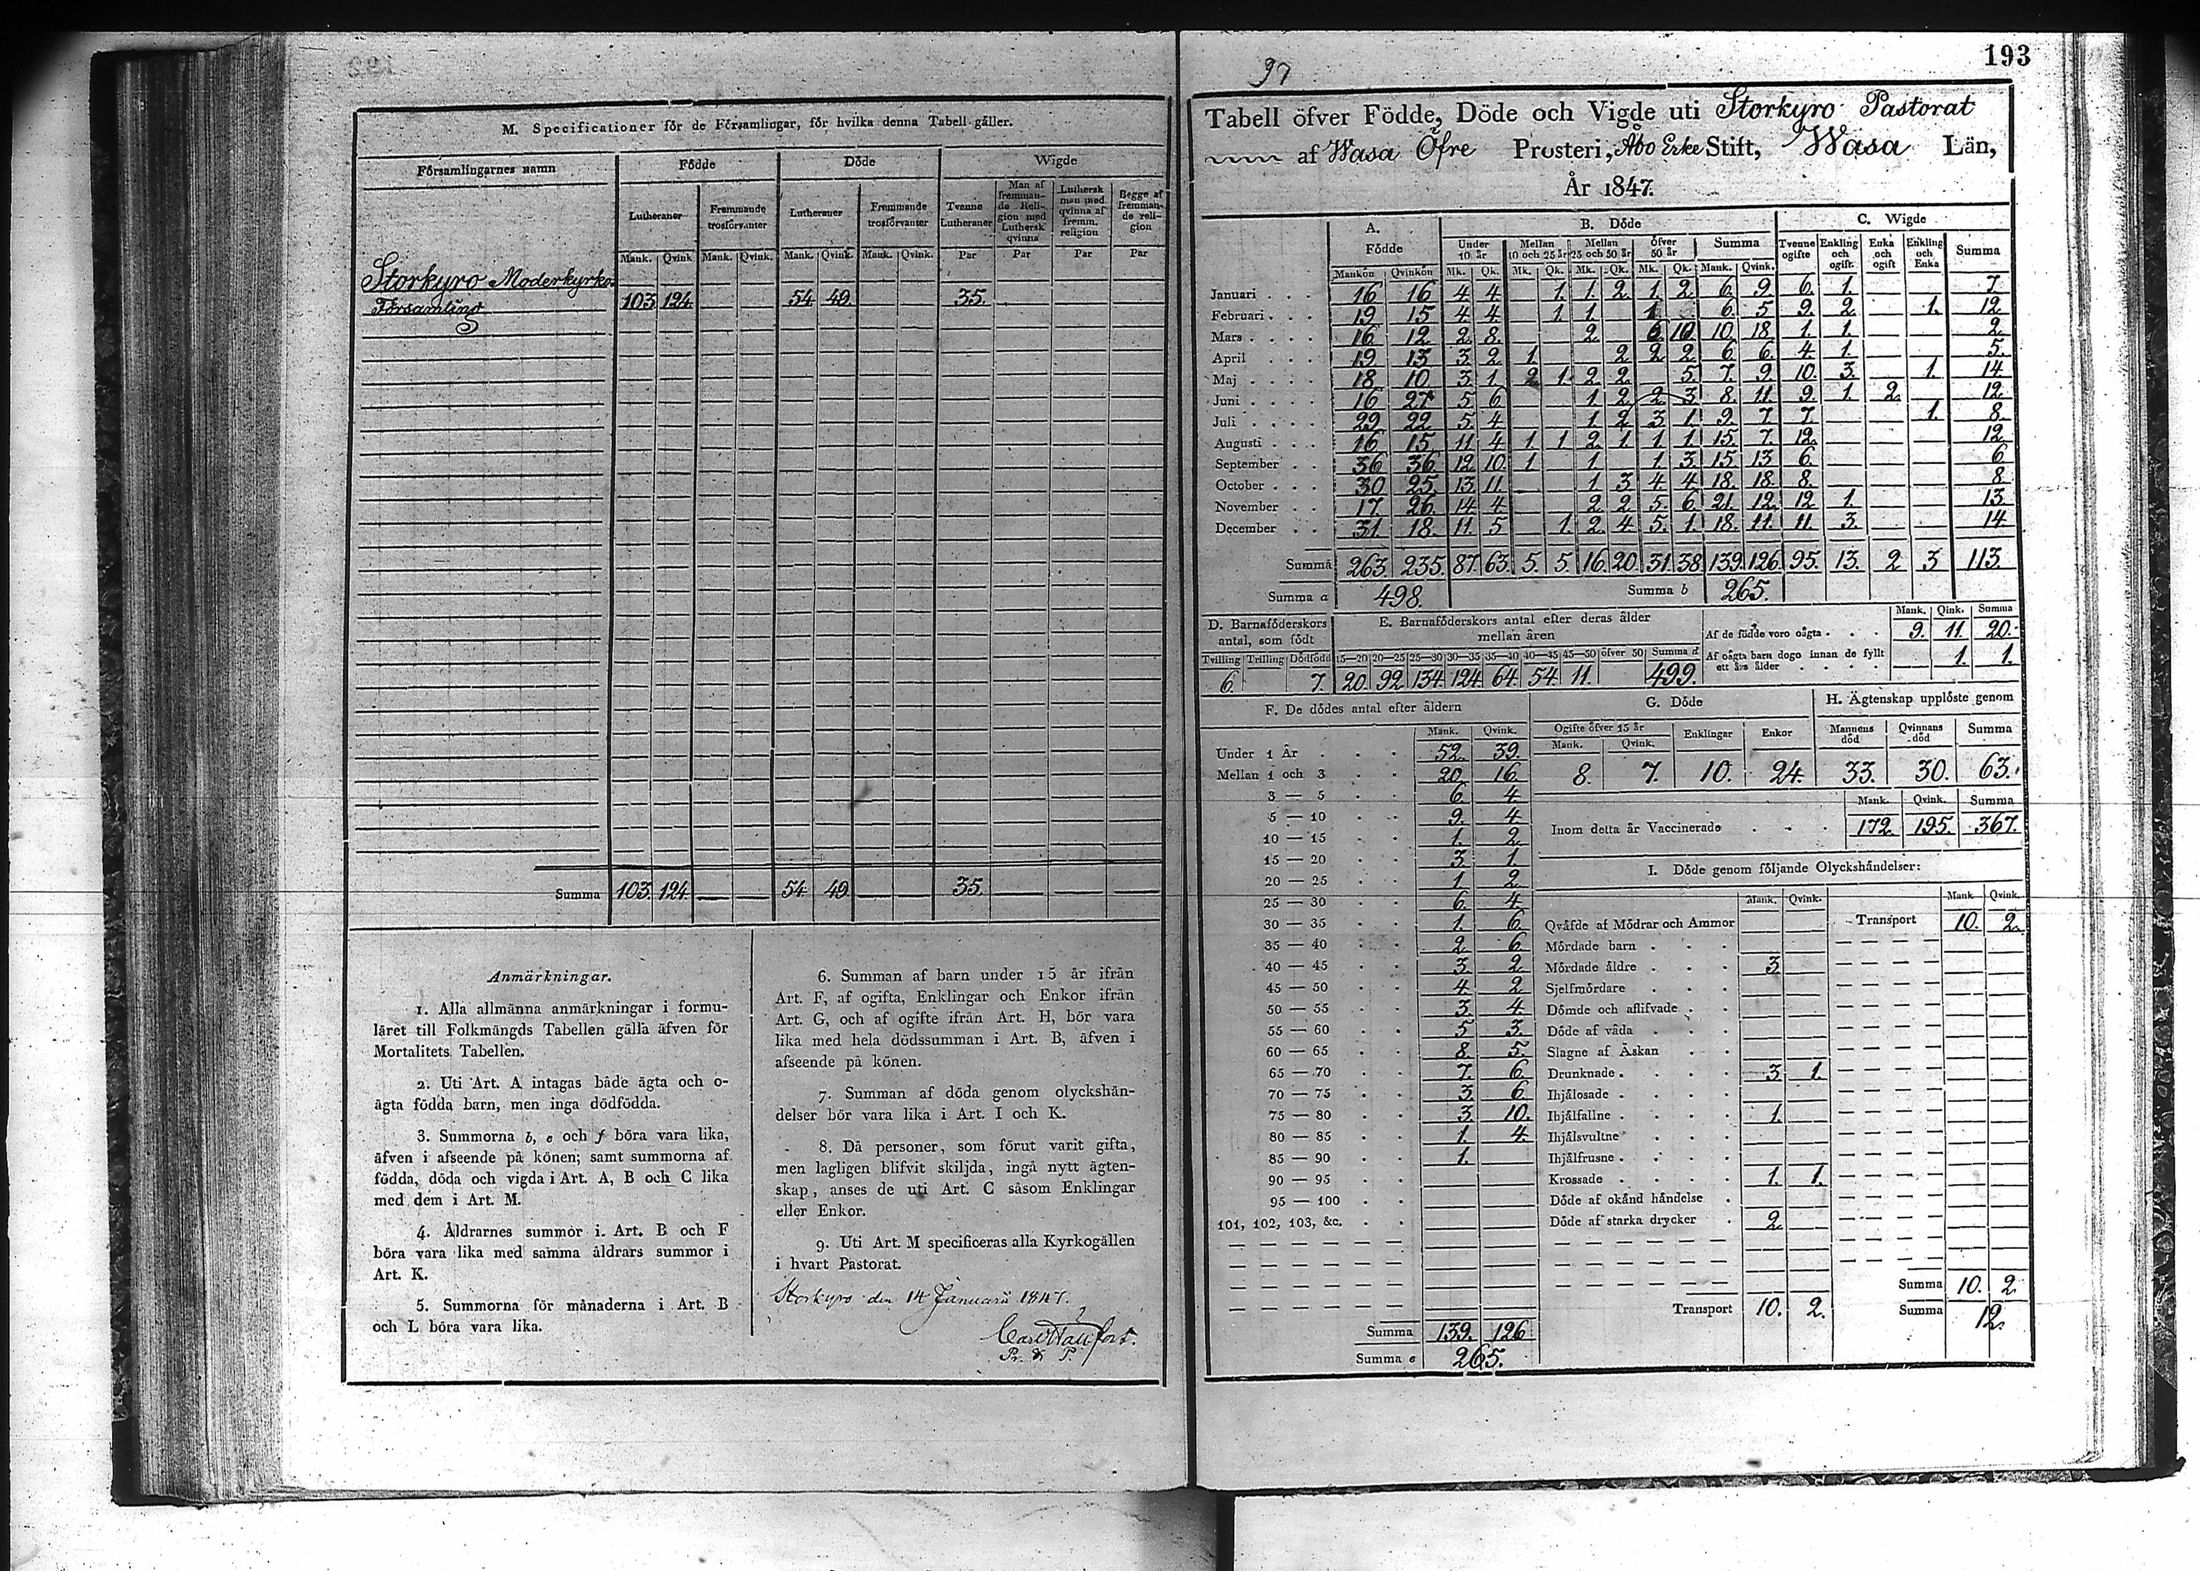 M. Specificationer för de Församlingar, för hvilka denna Tabell gäller.
Församlingarnes namn Födde Döde Wigde
Lutheraner Fremmande trosförvanter Lutheraner Fremmande trosförvanter Tvenne Lutheraner Man af fremmande Religion med Luthersk qvinna Luthersk man med qvinna af fremm. religion Begge af fremmande religion
Mank. Qvink. Mank. Qvink. Mank. Qvink. Mank. Qvink. Par Par Par Par
Storkyro Moderkyrko
Församling 103 124 54 49. 35.
Summa 103. 124. — — 54 49. — — 35. — — —
Anmärkningar.
1. Alla allmänna anmärkningar i formu-
läret till Folkmängds Tabellen gälla äfven för
Mortalitets Tabellen.
2. Uti Art. A intagas både ägta och o-
ägta födda barn, men inga dödfödda.
3. Summorna b, e och f böra vara lika,
äfven i afseende på könen; samt summorna af
födda, döda och vigda i Art. A, B och C lika
med dem i Art. M.
4. Åldrarnes summor i Art. B och F
böra vara lika med samma åldrars summor i
Art. K.
5. Summorna för månaderna i Art. B
och L böra vara lika.
6. Summan af barn under 15 år ifrån
Art. F, af ogifta, Enklingar och Enkor ifrån
Art. G, och af ogifte ifrån Art. H, bör vara
lika med hela dödssumman i Art. B, äfven i
afseende på könen.
7. Summan af döda genom olyckshän-
delser bör vara lika i Art. I och K.
8. Då personer, som förut varit gifta,
men lagligen blifvit skiljda, ingå nytt ägten-
skap, anses de uti Art. C såsom Enklingar
eller Enkor.
9. Uti Art. M specificeras alla Kyrkogällen
i hvart Pastorat.
Storkyro den 14 Januarii 1847.
Pr. & P.
97
193
Tabell öfver Födde, Döde och Vigde uti Storkyro Pastorat
af Wasa Öfre Prosteri, Åbo Erke Stift, Wasa Län,
År 1847.
A. Födde B. Döde C. Wigde
Under 10 år Mellan 10 och 25 år Mellan 25 och 50 år öfver 50 år Summa Tvenne ogifte Enkling och ogift. Enka och ogift Enkling och Enka Summa
Mankön Qvinkön Mk. Qk. Mk. Qk. Mk. Qk. Mk. Qk. Mank. Qvink.
Januari . . . 16 16 4 4 1. 1. 2 1. 2 6 9 6. 1. 7
Februari . . . 19 15 4 4 1 1 1 6. 5 9. 2 1. 12
Mars . . . . 16 12 2 8. 2 6 10 10. 18 1. 1. 2
April . . . 19 13 3 2 1. 2 2 2 6 6. 4 1. 5.
Maj . . . . 18 10 3 1 2 1 2 2 5 7. 9 10. 3. 1. 14
Juni . . . . 16 27 5 6 1. 2 2 3 8. 11 9. 1. 2 12
Juli . . . . 29 22 5 4 1 2 3 1 9. 7 7. 1. 8.
Augusti . . . 16 15 11 4 1 1 2 1 1 1 15. 7. 12. 12
September . . 36 36 12 10 1 1. 1. 3 15 13 6. 6
October . . . 30 25 13 11 1 3 4 4 18. 18. 8. 8.
November . . 17. 26 14 4 2 2 5 6 21. 12. 12 1. 13
December . . 31. 18. 11 5 1. 2 4 5. 1. 18. 11. 11. 3. 14
Summa 263. 235. 87. 63. 5. 5. 16. 20. 31. 38 139. 126. 95. 13. 2 3 113.
Summa a 498. Summa b 265.
D. Barnaföderskors antal, som födt
Tvilling Trilling Dödfödd
6. 7.
E. Barnaföderskors antal efter deras ålder
mellan åren
15—20 20—25 25—30 30—35 35—40 40—45 45—50 öfver 50 Summa d
20. 92. 134. 124. 64. 54. 11. 499.
Mank. Qink. Summa
Af de födde voro oägta . . . 9. 11. 20.
Af oägta barn dogo innan de fyllt
ett års ålder . . . . 1. 1.
F. De dödes antal efter åldern
Mank. Qvink.
Under 1 År . . . 52. 39.
Mellan 1 och 3 . . 20. 16.
3 — 5 . . 6. 4.
5 — 10 . . 9. 4.
10 — 15 . . 1. 2.
15 — 20 . . 3. 1.
20 — 25 . 1 2
25 — 30 . . 6. 4.
30 — 35 . . 1. 6.
35 — 40 . . 2 6
40 — 45 . . 3. 2.
45 — 50 . . 4. 2
50 — 55 . . 3. 4.
55 — 60 . . 5 3.
60 — 65 . . 8 5.
65 — 70 . . 7. 6.
70 — 75 . . 3. 6
75 — 80 . . 3 10.
80 — 85 . . 1. 4.
85 — 90 . . 1.
90 — 95 . .
95 — 100 . .
101, 102, 103, &c. . .
Summa 139. 126
Summa e 265.
G. Döde
Ogifte öfver 15 år Enklingar Enkor
Mank. Qvink.
8. 7. 10. 24.
H. Ägtenskap upplöste genom
Mannens död Qvinnans död Summa
33. 30. 63.
Mank. Qvink. Summa
Inom detta år Vaccinerade . . . 172. 195. 367.
I. Döde genom följande Olyckshändelser:
Mank. Qvink. Mank. Qvink.
Qväfde af Mödrar och Ammor Transport 10. 2.
Mördade barn . . .
Mördade äldre . . . 3
Sjelfmördare . . .
Dömde och aflifvade . .
Döde af våda . . .
Slagne af Åskan . .
Drunknade . . . . 3. 1.
Ihjälosade . . . .
Ihjälfallne . . . . 1.
Ihjälsvultne . . .
Ihjälfrusne . . . .
Krossade . . . . 1. 1.
Döde af okänd händelse .
Döde af starka drycker . 2
Summa 10. 2.
Transport 10. 2. Summa 12.